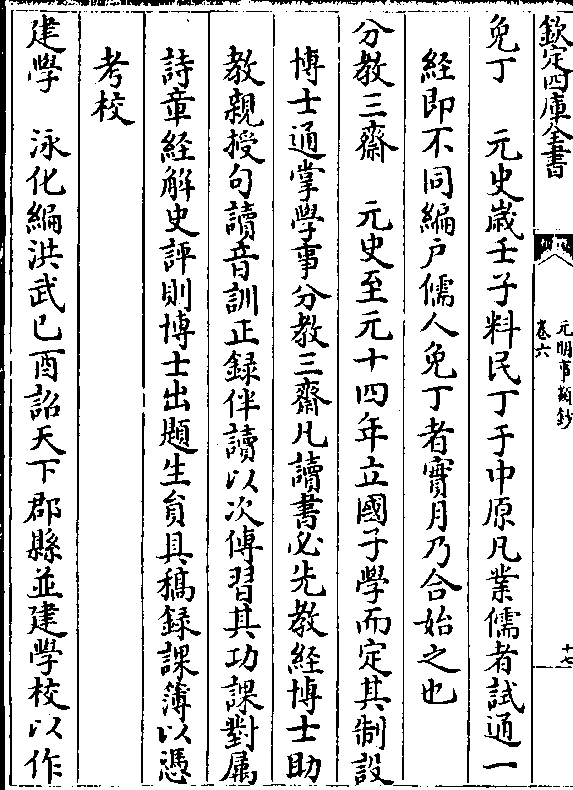 欽定四庫全書
元明事類鈔
卷六
十七
免丁　元史歲壬子料民丁于中原凡業儒者試通一
經即不同編户儒人免丁者寳月乃合始之也
分教三齋　元史至元十四年立國子學而定其制設
博士通掌學事分教三齋凡讀書必先教經博士助
教親授句讀音訓正録伴讀以次傳習其功課對属
詩章經解史評則博士出題生員具稿録課簿以憑
考校
建學　泳化編洪武己酉詔天下郡縣並建學校以作